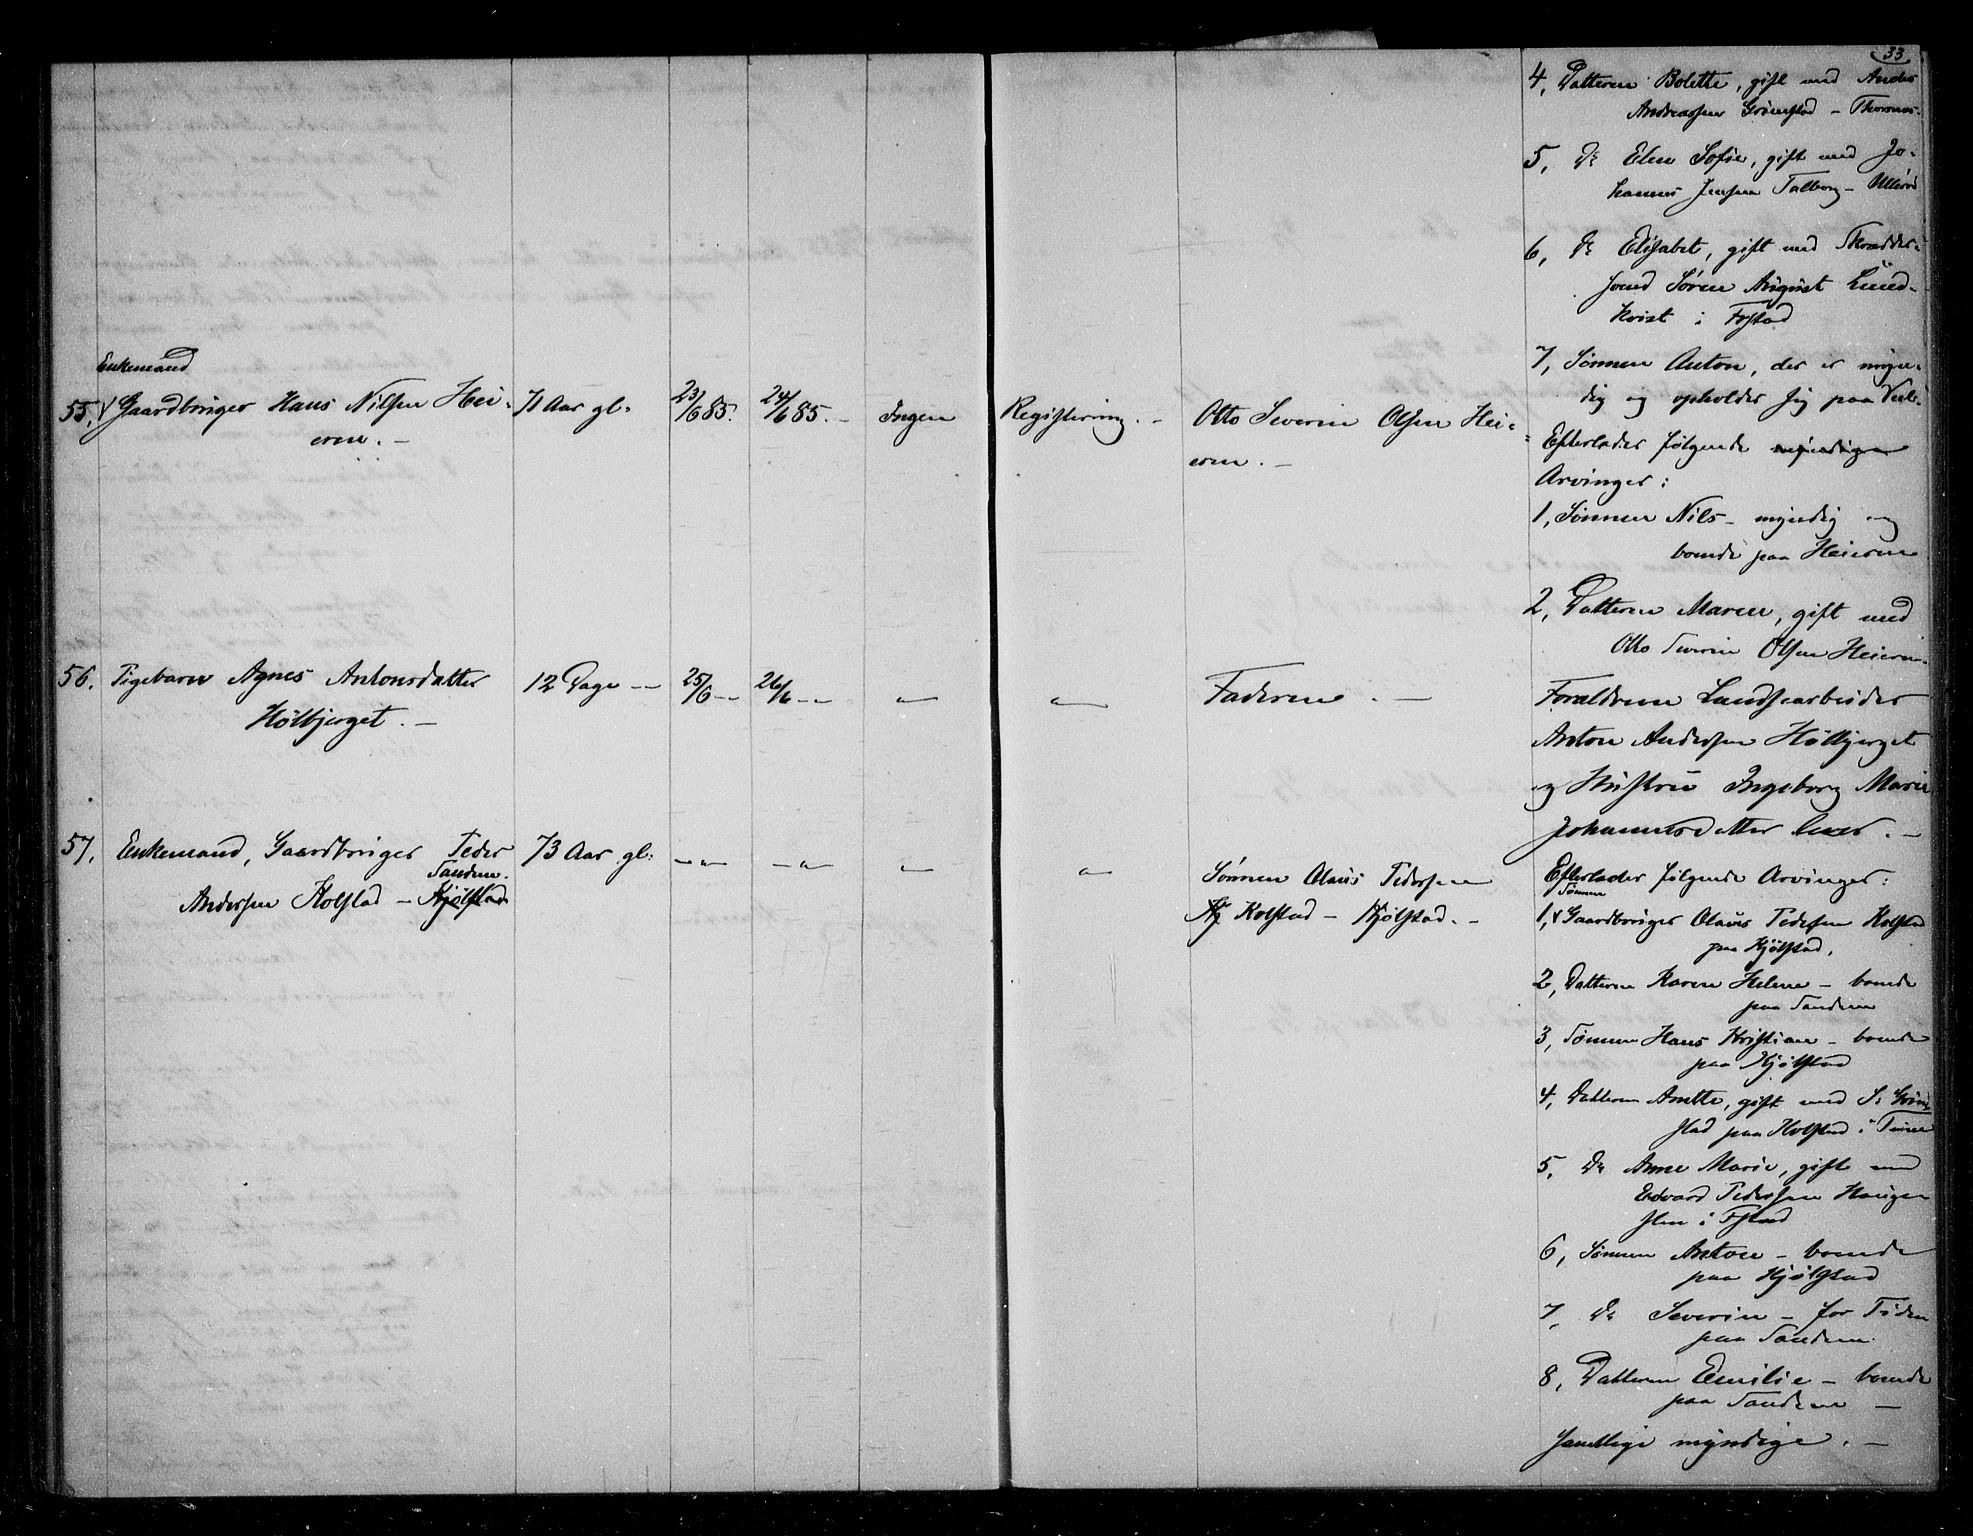 33
4, Datteren Bolette, gift med Anders
Andreassen Grimstad – Thormos-
5, Do Elen Sofie, gift med Jo-
hannes Jensen Talberg – Ullerød
6, Do Elisabet, gift med Skrædder-
svend Søren August Lund-
kvist i Fstad
7, Sønnen Anton, der er myn-
dig og opholder sig paa
Enkemand
55, Gaardbruger Hans Nilsen Hei-
eren. –
71 Aar gl.
23/6 85.
24/6 85. –
Ingen
Registrering. –
Otto Severin Olsen Hei-
eren. –
Efterlader følgende myndige
Arvinger:
1, Sønnen Nils – myndig og
boende paa Heieren
2, Datteren Maren, gift med
Otto Severin Olsen Heieren.
56. Pigebarn Agnes Antonsdatter
Hølbjerget. –
12 Dage –
25/6 – –
26/6 – –
– " –
– " –
Faderen. –
Forældrene Landsarbeider
Anton Andersen Hølbjerget
og Hustru Ingeborg Marie
Johannesdatter lever. –
57, Enkemand, Gaardbruger Peder
Sandem.
Andersen Kolstad – Kjølstad
73 Aar gl.
– " –
– " –
– " –
– " –
Sønnen Olaus Pedersen
Kj Kolstad – Kjølstad. –
Efterlader følgende Arvinger:
Sønnen
1, Gaardbruger Olaus Pedersen Kolstad
paa Kjølstad,
2, Datteren Karen Helene – boende
paa Sandem
3, Sønnen Hans Kristian – boende
paa Kjølstad
4, Datteren Anette, gift med S: Grim-
stad paa Kolstad i
5, Do Anne Marie, gift med
Edvard Pedersen Haugen
sten i Fstad
6, Sønnen Anton – boende
paa Kjølstad
7, Do Severin – for Tiden
paa Sandem
8, Datteren Emilie – boende
paa Sandem –
samtlige myndige. –